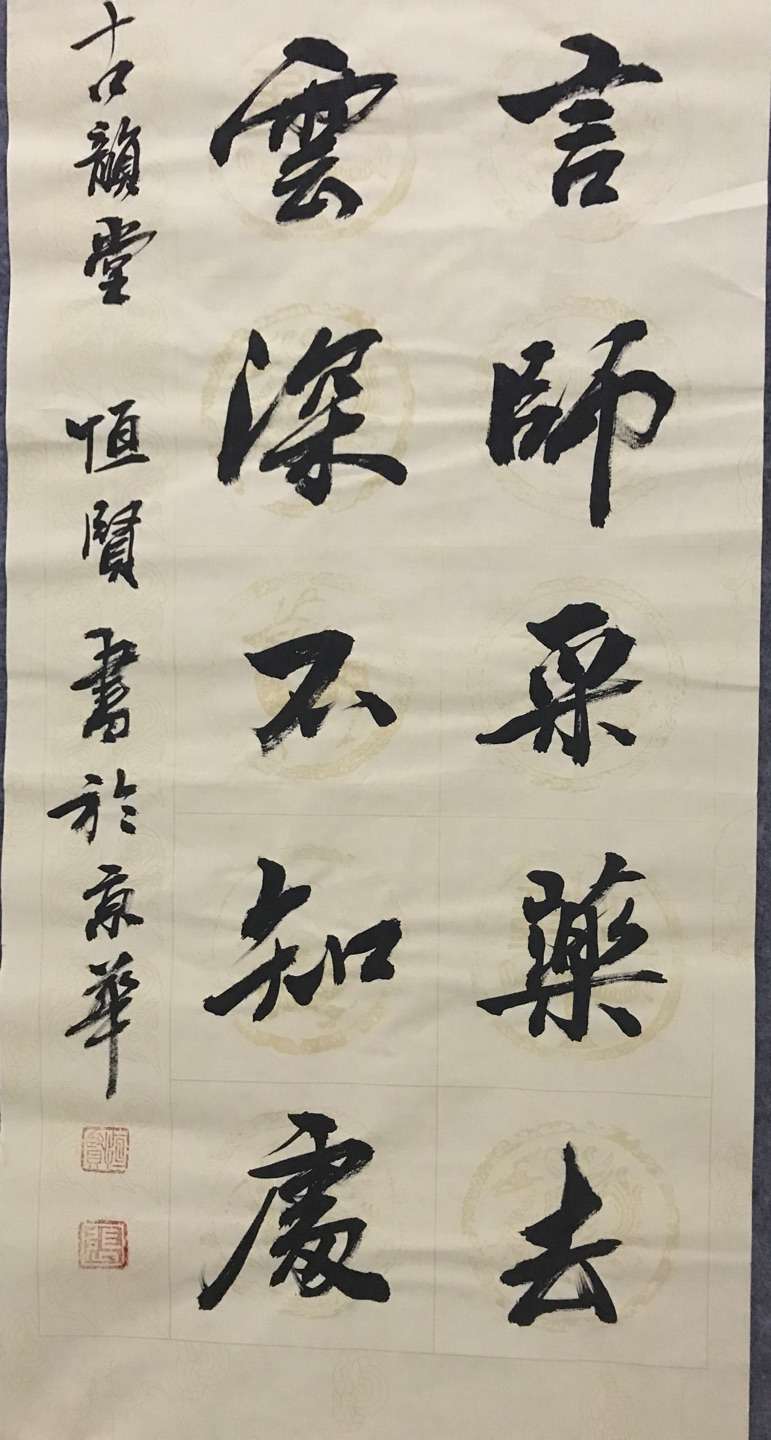 言師采藥去
雲深不知處
古韻堂 恒賢書於京華
恒賢
張